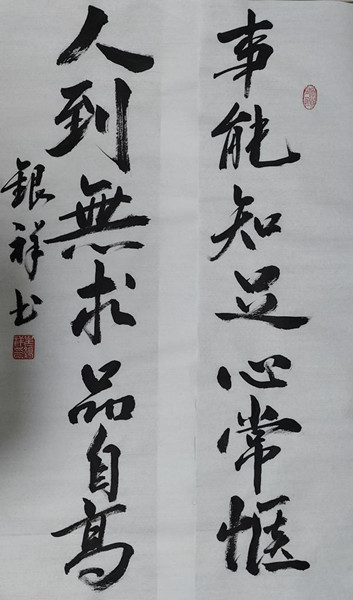 事能知足心常惬
人到無求品自高
銀祥书